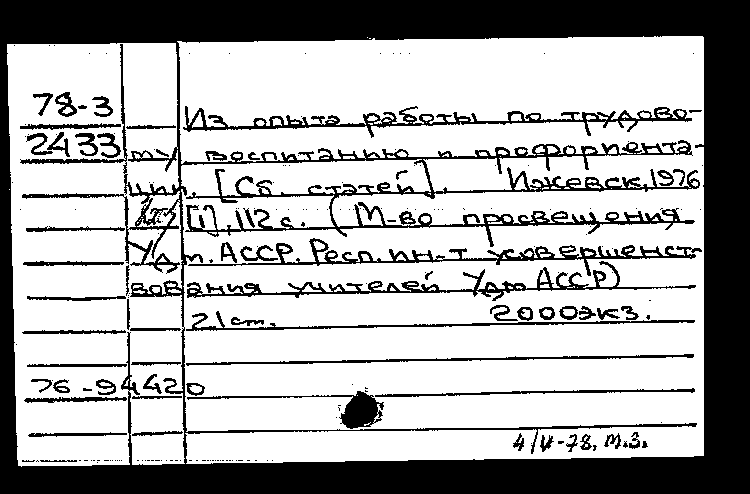 78-3 Из опыта работы по трудово-
2433 му воспитанию и профориента-
ции. [Сб. статей]. Ижевск, 1976
[1], 112 с. (М-во просвещения
Удм. АССР. Респ. ин-т усовершенст-
вования учителей Удм АССР)
21 см. 2000 экз.
76-94420
4/V-78, М.З.